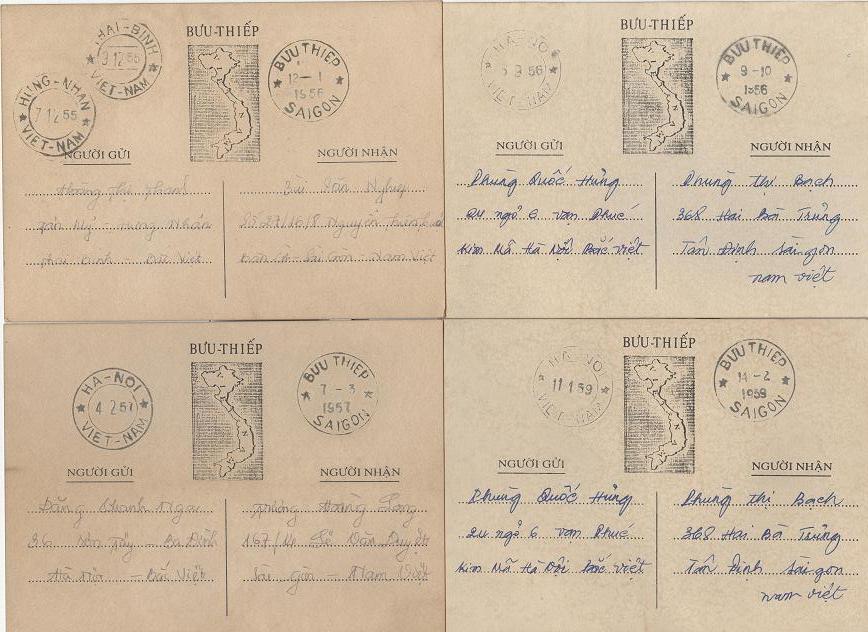 BƯU-THIẾP
THAI-BINH
9 12 55
VIET-NAM
HUNG-NHAN
7 12 55
VIET-NAM
BUU THIEP
12-1
1956
SAIGON
NGƯỜI GỬI
NGƯỜI NHẬN
Hoàng thị
Hưng Nhân
Bắc Việt
Bùi Văn
Số 27/16/8 Nguyễn
Sài Gòn - Nam Việt
BƯU-THIẾP
HA-NOI
9 56
VIET-NAM
BUU THIEP
9-10
1956
SAIGON
NGƯỜI GỬI
NGƯỜI NHẬN
Phùng Quốc Hưng
24 ngõ 6 Vạn Phúc
Kim Mã Hà Nội Bắc việt
Phung Thị Bạch
368 Hai Bà Trưng
Tân Định Sài gon
nam việt
BƯU-THIẾP
HA-NOI
4 2 57
VIET-NAM
BUU THIEP
7-3
1957
SAIGON
NGƯỜI GỬI
NGƯỜI NHẬN
Đặng Khanh
36 - Ba Đình
Hà Nội - Bắc Việt
Hoàng Long
167/ Lê Văn Duyệt
Sài gòn - Nam Việt
BƯU-THIẾP
HA-NOI
11 1 59
VIET-NAM
BUU THIEP
14-2
1959
SAIGON
NGƯỜI GỬI
NGƯỜI NHẬN
Phùng Quốc Hưng
24 ngõ 6 Vạn Phúc
Kim Mã Hà Nội Bắc việt
Phung Thị Bạch
368 Hai Bà Trưng
Tân Định Sài gon
nam việt